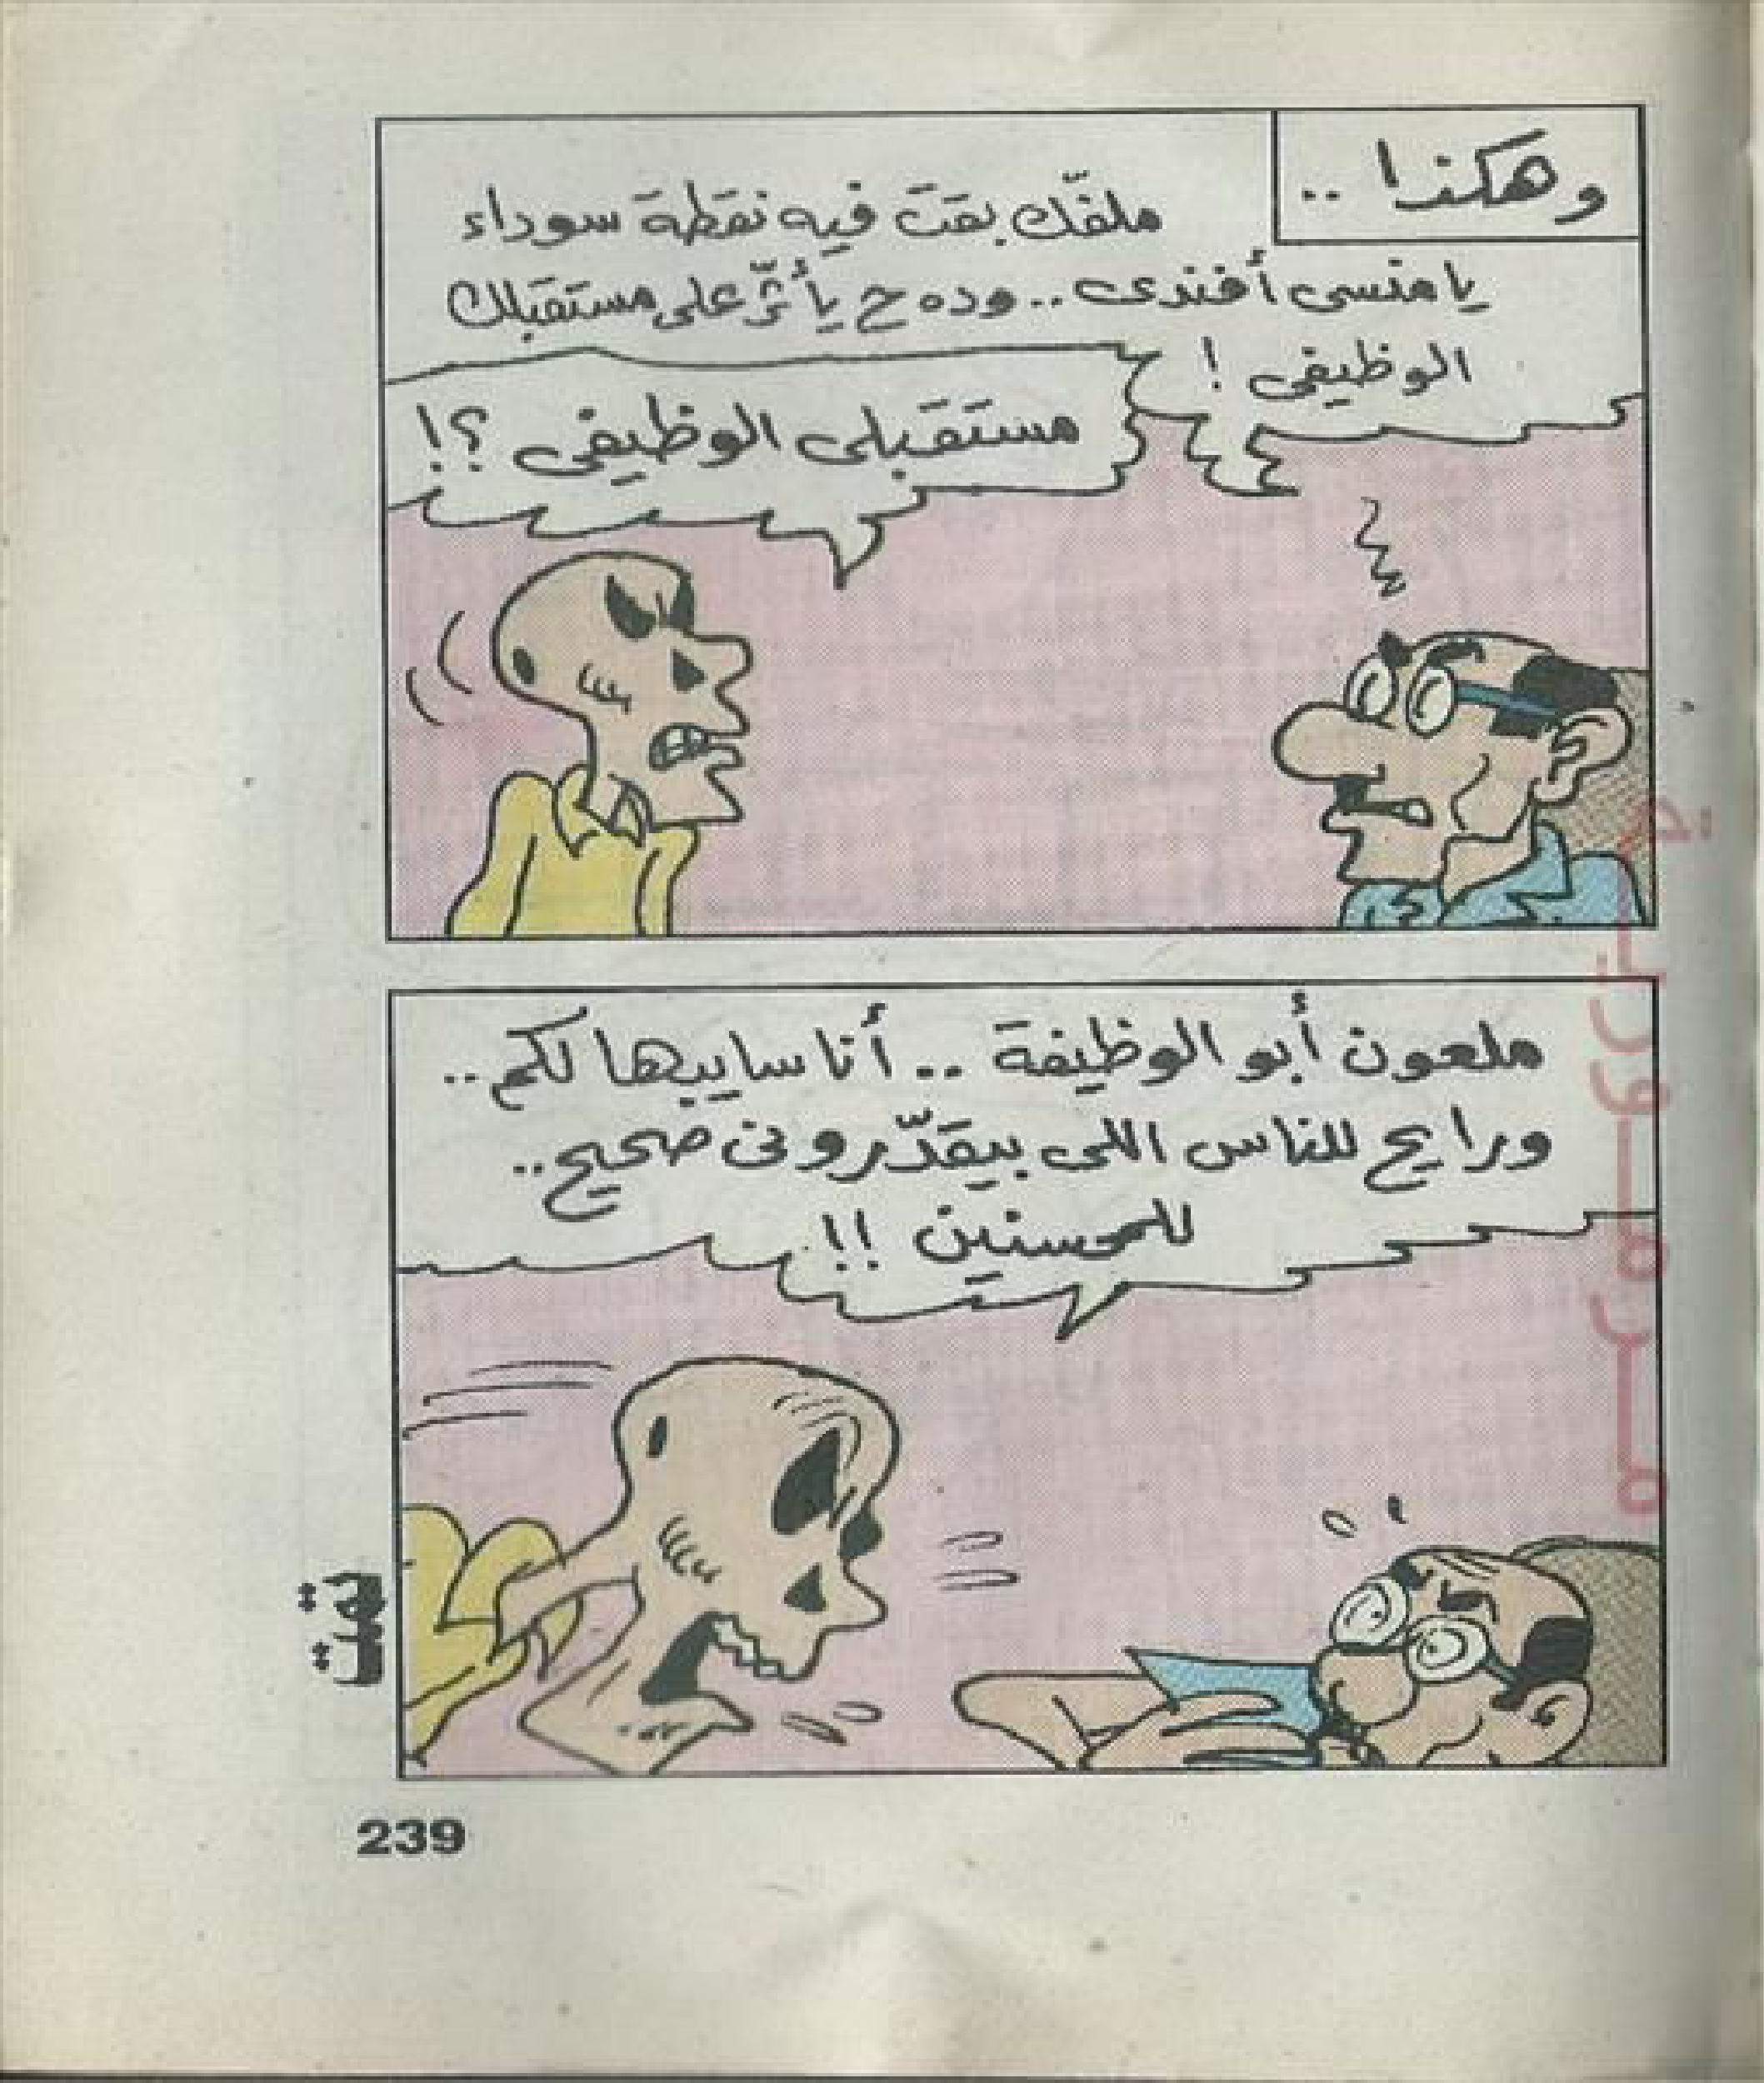 وهكذا ..
ملفّك بقت فيه نقطة سوداء
يا منسى أفندى .. وده ح يأثّر على مستقبلك
الوظيفى !
مستقبلى الوظيفى ؟!
ملعون أبو الوظيفة .. أنا سايبها لكم ..
ورايح للناس اللى بيقدّرونى صحيح ..
للمحسنين !!
تمت
239